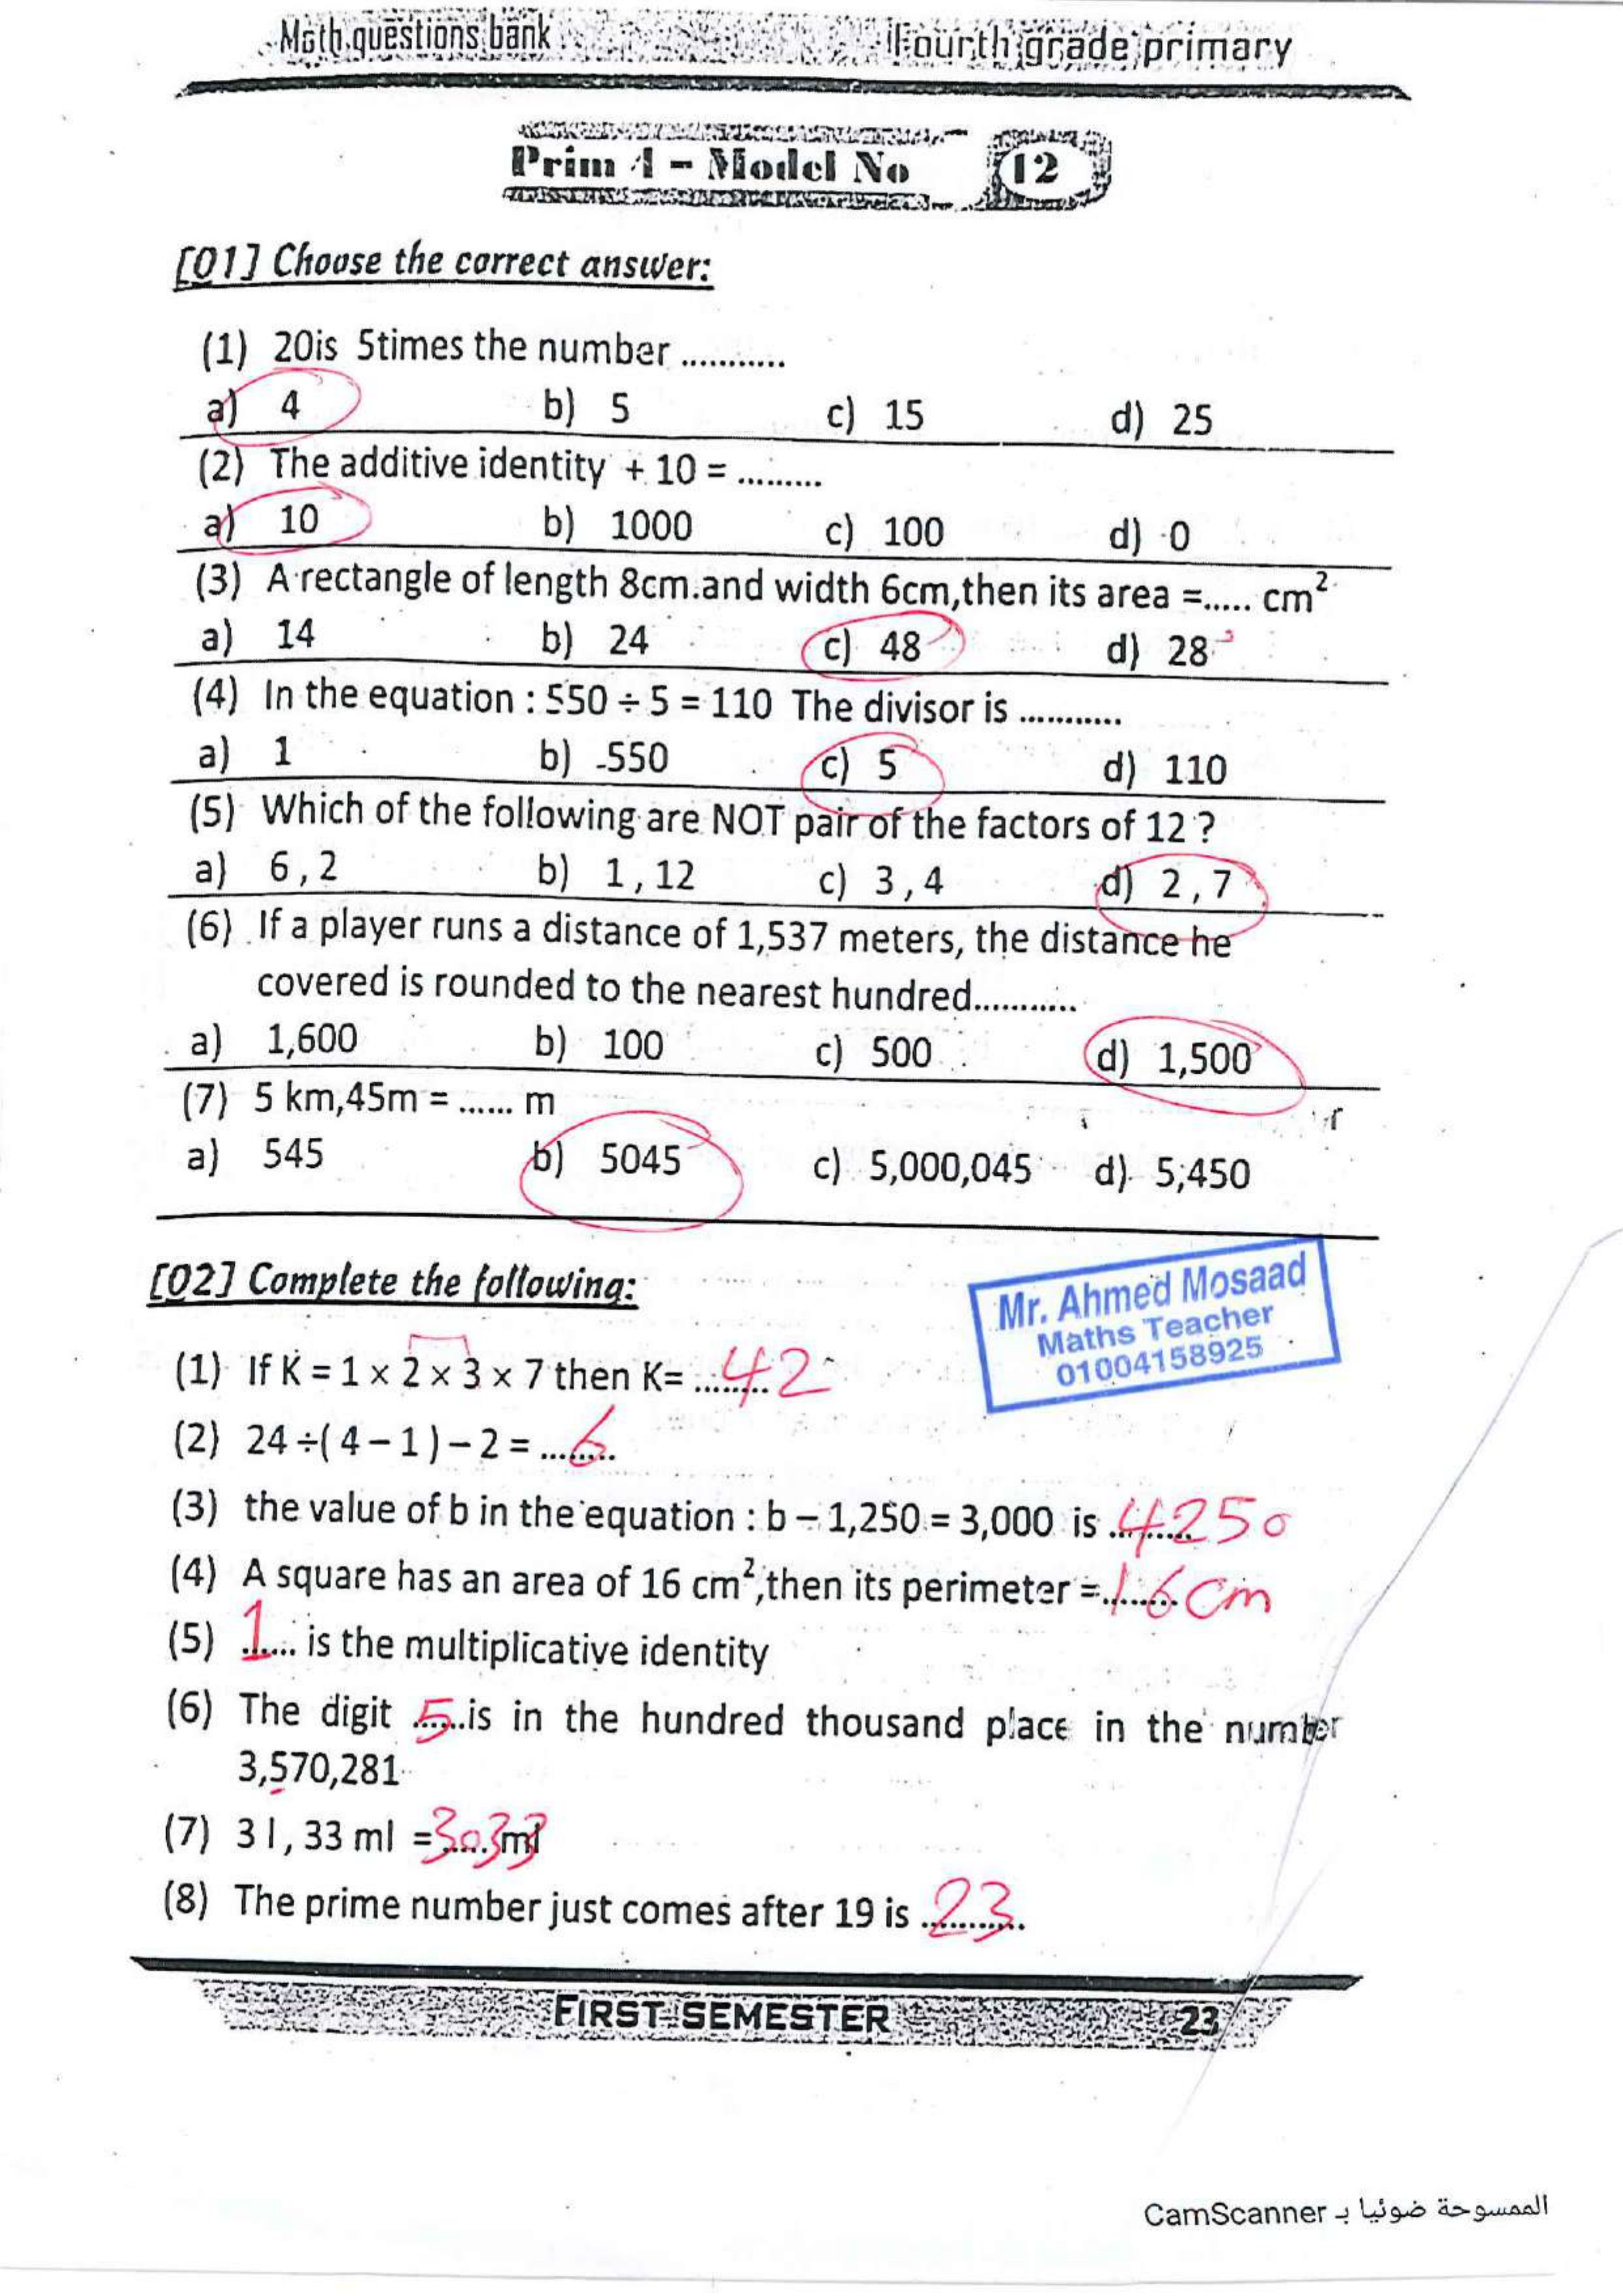 Math questions bank Fourth grade primary
Prim 4 - Model No 12
[Q1] Choose the correct answer:
(1) 20is 5times the number ...........
a) 4 b) 5 c) 15 d) 25
(2) The additive identity + 10 = .........
a) 10 b) 1000 c) 100 d) 0
(3) A rectangle of length 8cm.and width 6cm,then its area =..... cm²
a) 14 b) 24 c) 48 d) 28
(4) In the equation : 550 ÷ 5 = 110 The divisor is ...........
a) 1 b) 550 c) 5 d) 110
(5) Which of the following are NOT pair of the factors of 12 ?
a) 6 , 2 b) 1 , 12 c) 3 , 4 d) 2 , 7
(6) If a player runs a distance of 1,537 meters, the distance he
covered is rounded to the nearest hundred...........
a) 1,600 b) 100 c) 500 d) 1,500
(7) 5 km,45m = ...... m
a) 545 b) 5045 c) 5,000,045 d) 5,450
[Q2] Complete the following:
Mr. Ahmed Mosaad
Maths Teacher
01004158925
(1) If K = 1 × 2 × 3 × 7 then K= ......... 42
(2) 24 ÷( 4 – 1 ) – 2 = ........ 6
(3) the value of b in the equation : b – 1,250 = 3,000 is ......... 4250
(4) A square has an area of 16 cm²,then its perimeter =......... 16 cm
(5) 1...... is the multiplicative identity
(6) The digit ..5...is in the hundred thousand place in the number
3,570,281
(7) 3 l , 33 ml =3033 ml
(8) The prime number just comes after 19 is 23...........
FIRST SEMESTER 23
الممسوحة ضوئيا بـ CamScanner